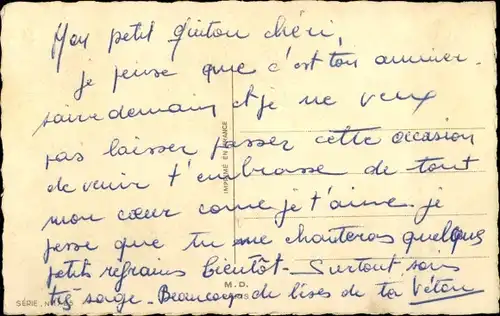 Mon petit quiton chéri,
je pense que c'est ton anniver-
saire demain et je ne veux
pas laisser passer cette occasion
de venir t'embrasse de tout
mon cœur come je t'aime. je
pense que tu me chanteras quelques
petits refrains bientôt. Surtout sois
très sage. Beaucoup de bises de ta
IMPRIMÉ EN FRANCE
M. D.
SÉRIE